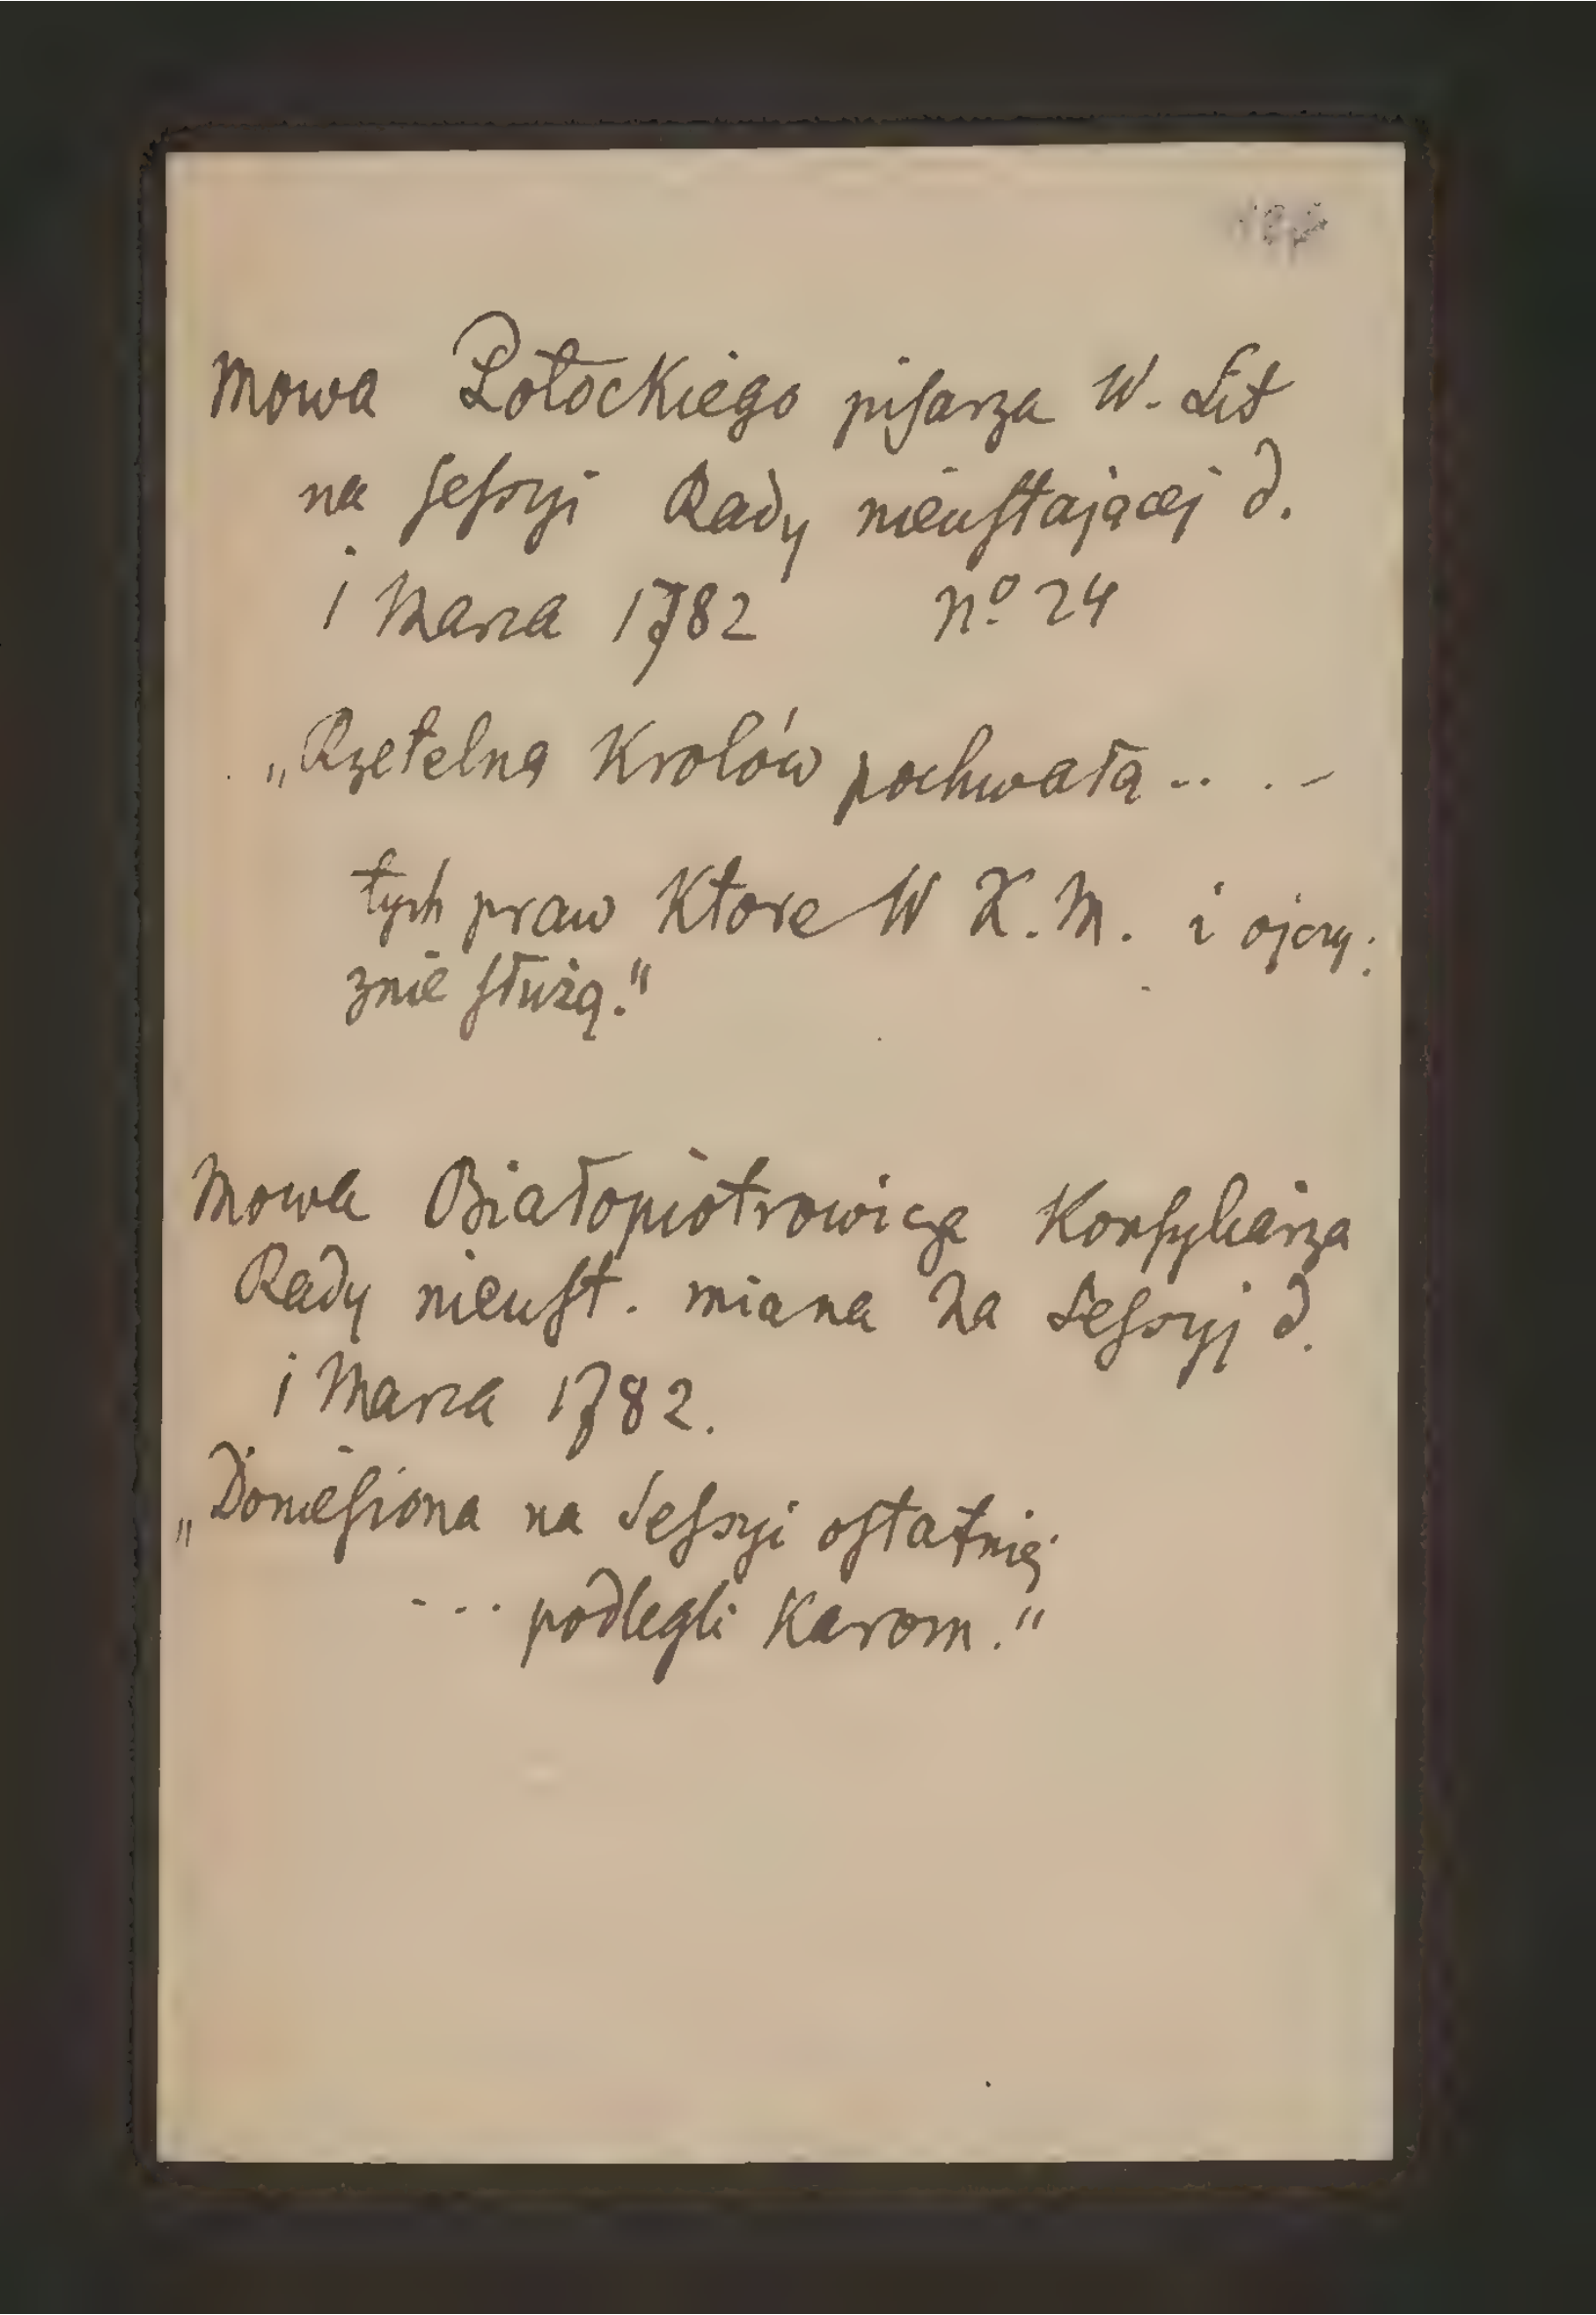 Mowa Potockiego pisarza W. Lit
na sessyi Rady nieustającej d.
1 Marca 1782 No 24
„Rzetelną Krolów pochwałą .. . –
tych praw Ktore W K. M. i ojczy:
znie służą."
Mowa Białopiotrowicza Konsyliarza
Rady nieust. miana na Sessyj d.
1 Marca 1782.
„Doniesiona na Sessyi ostatniej
... podlegli Karom."